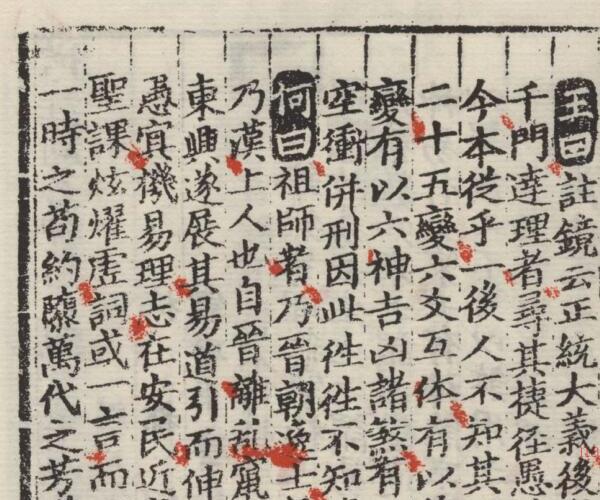 王曰註鏡云正統大義後
千門達理者尋其捷徑愚
今本從乎一後人不知其
二十五變六爻互体有以
變有以六神吉凶諸煞有
空衝併刑因此徃徃不知
何曰祖師者乃晉朝逸士
乃漢上人也自晉離亂竄
東興遂展其易道引而伸
愚冥機易理志在安民近
聖課炫燿虛詞或一言而
一時之苟約驤萬代之芳